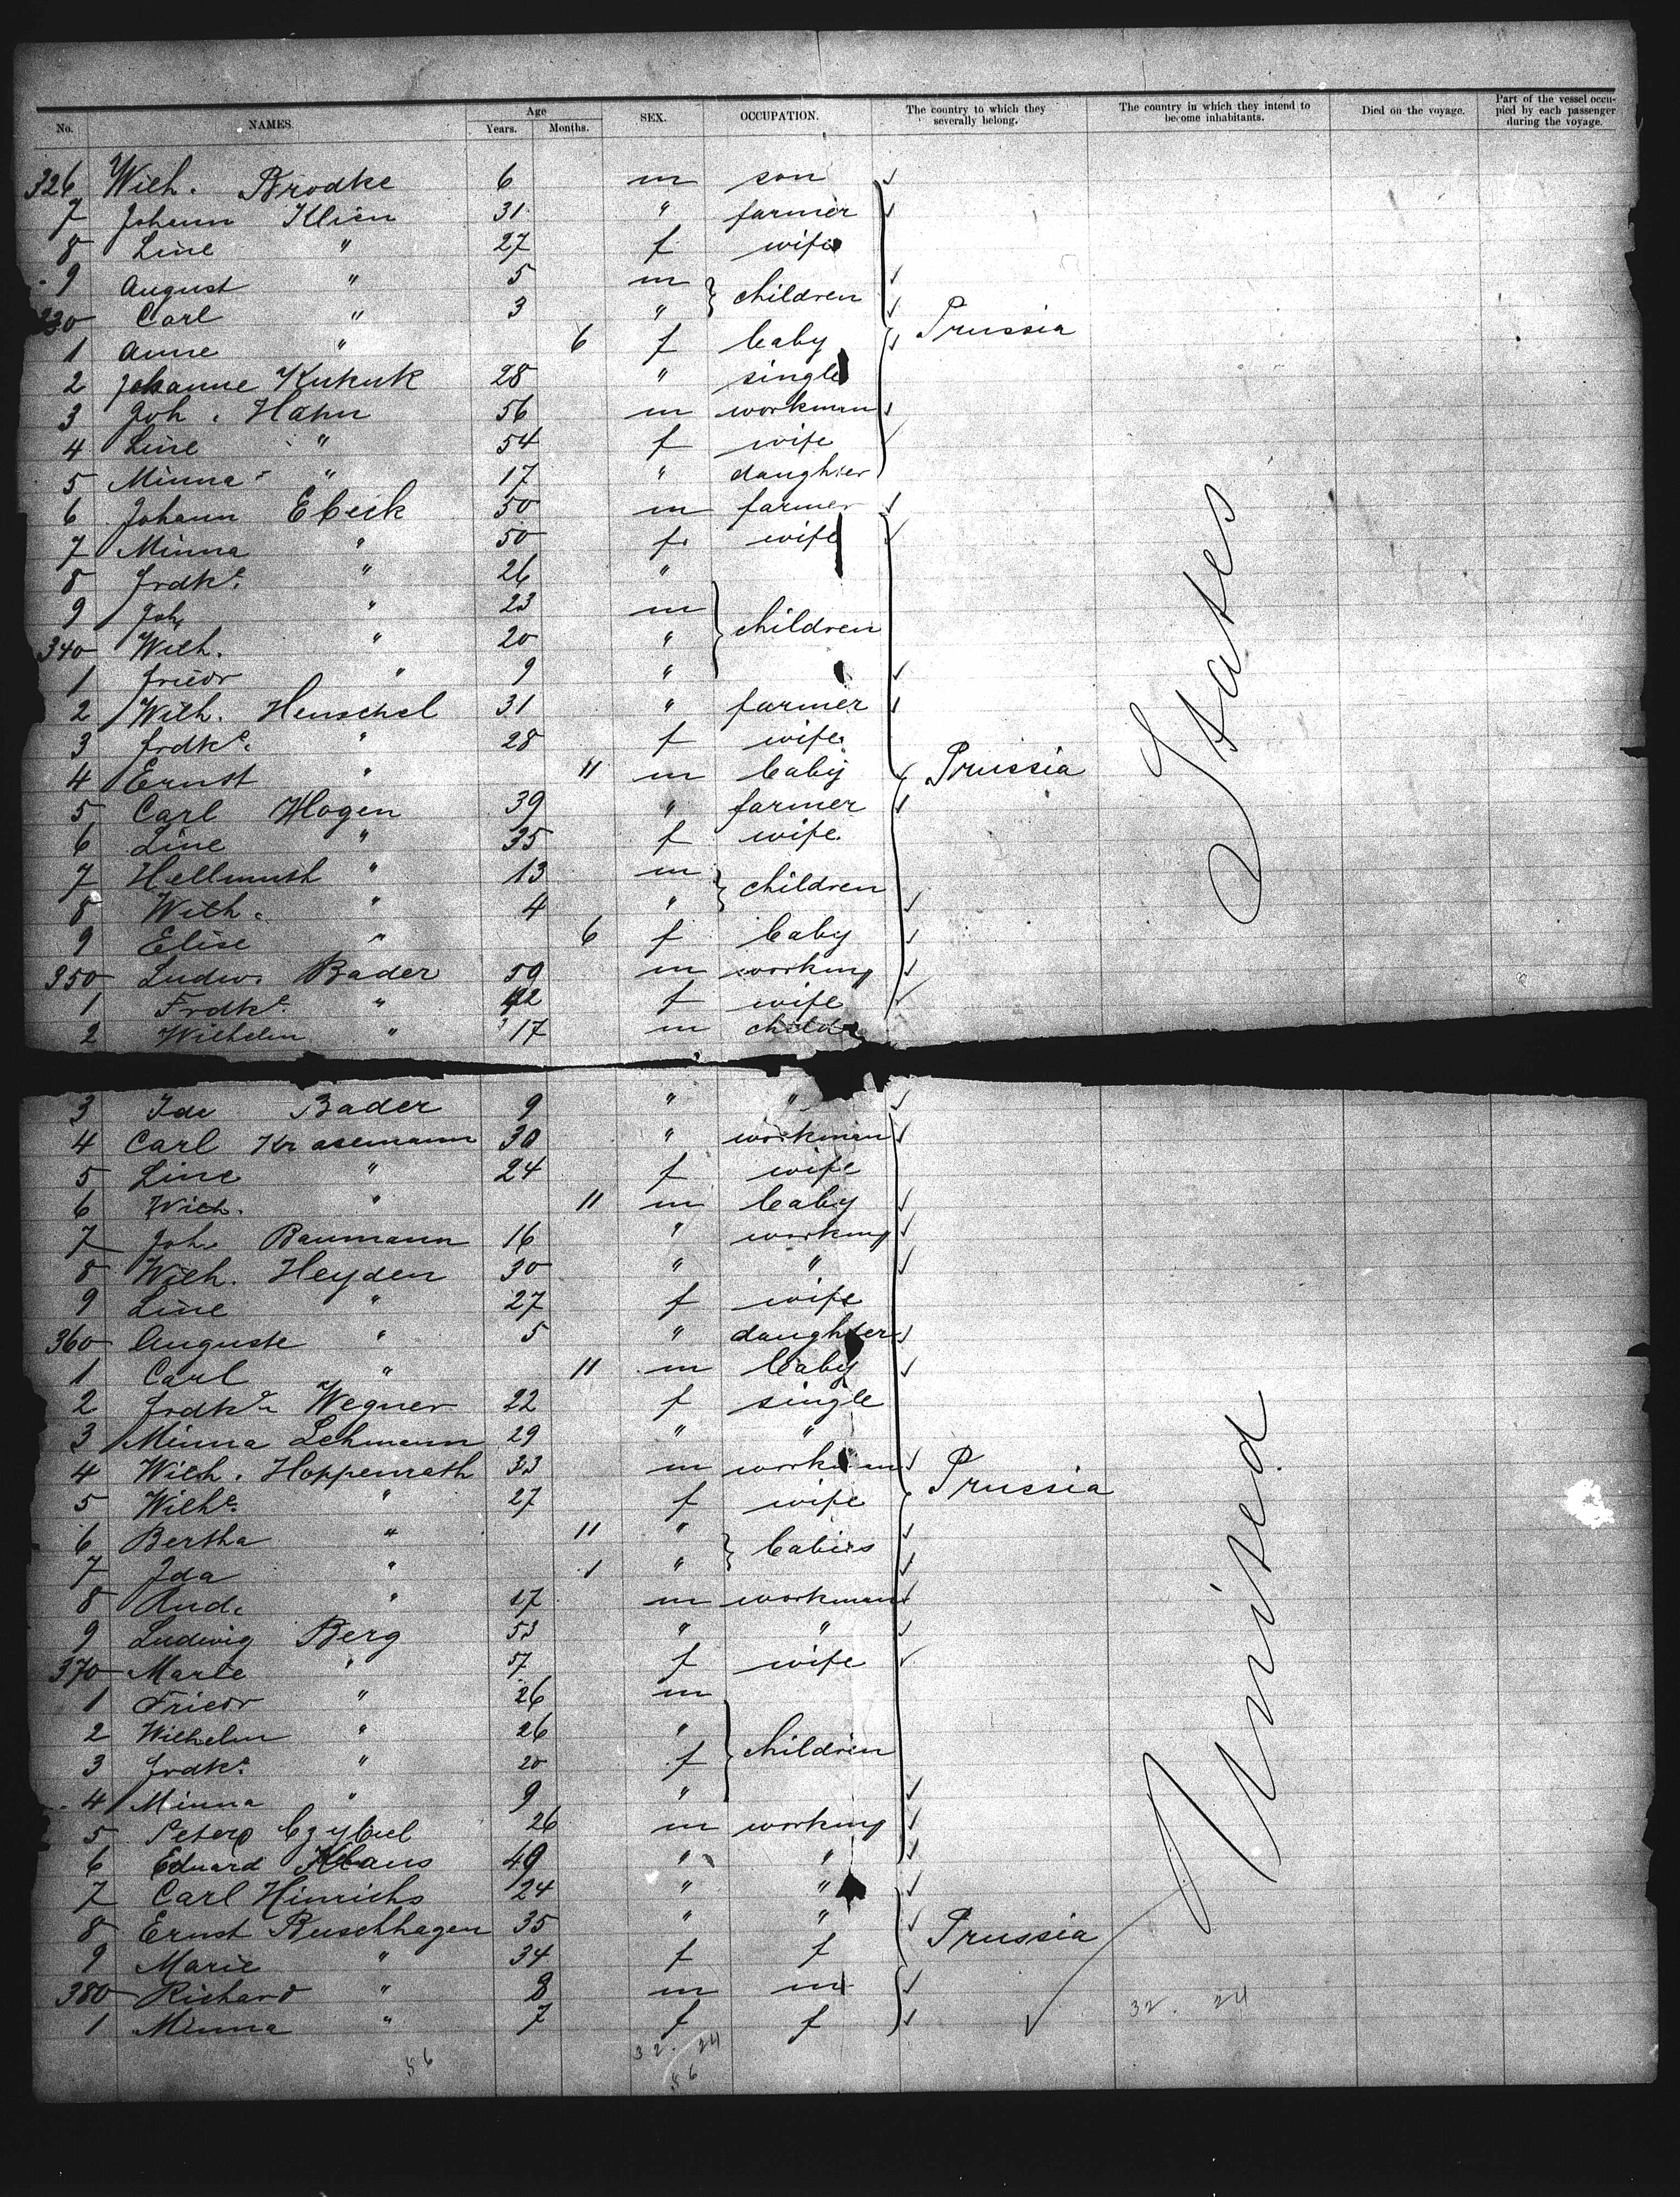 No. NAMES. Age Years. Months. SEX. OCCUPATION. The country to which they severally belong. The country in which they intend to become inhabitants. Died on the voyage. Part of the vessel occupied by each passenger during the voyage.
326 Wilh. Brodke 6 m son
7 Johann Klien 31 " farmer
8 Line " 27 f wife
9 August " 5 m
330 Carl " 3 " children
1 Anne " 6 f baby Prussia
2 Johanne Kukuk 28 " single
3 Joh. Hahn 56 m workman
4 Line " 54 f wife
5 Minna " 17 " daughter
6 Johann Ebeik 50 m farmer
7 Minna " 50 f wife
8 Frdke. " 26 "
9 Joh. " 23 m children
340 Wilh. " 20 "
1 Friedr " 9 "
2 Wilh. Henschel 31 " farmer
3 Frdke. " 28 f wife
4 Ernst " 11 m baby Prussia
5 Carl Hogen 39 " farmer
6 Line " 35 f wife
7 Hellmuth " 13 m children
8 Wilh. " 4 "
9 Elise " 6 f baby
350 Ludw. Bader 59 m working
1 Frdke. " 42 f wife
2 Wilhelm " 17 m child
States
3 Ida Bader 9 " "
4 Carl Krasemann 30 " workman
5 Line " 24 f wife
6 Wilh. " 11 m baby
7 Joh. Baumann 16 " working
8 Wilh. Heyden 30 " "
9 Line " 27 f wife
360 Auguste " 5 " daughter
1 Carl " 11 m baby
2 Frdke. Wegner 22 f single
3 Minna Lehmann 29 " "
4 Wilh. Hoppenrath 33 m workman Prussia
5 Wilhe. " 27 f wife
6 Bertha " 11 " babies
7 Ida " 1 "
8 Aud. " 17 m workman
9 Ludwig Berg 53 " "
370 Marie " 57 f wife
1 Friedr " 26 m
2 Wilhelm " 26 " children
3 Frdke. " 20 f
4 Minna " 9 "
5 Peter Czybul 26 m working
6 Eduard Klaus 49 " "
7 Carl Hinrichs 24 " "
8 Ernst Buschhagen 35 " " Prussia
9 Marie " 34 f f
380 Richard " 8 m m
1 Minna " 7 f f
United
32. 24
56 32. 24
56